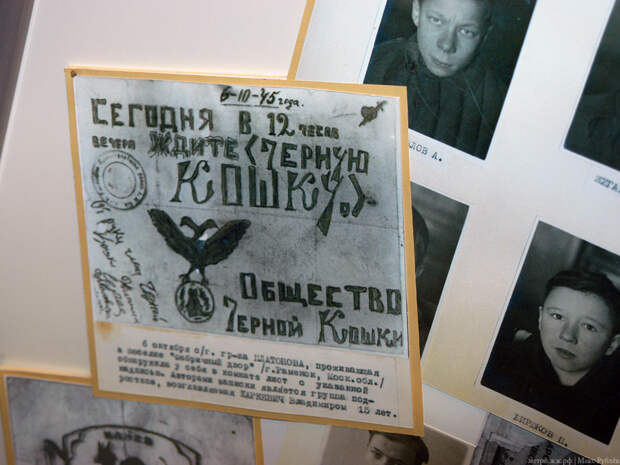 6-10-45 года.
СЕГОДНЯ В 12 ЧАСОВ
ВЕЧЕРА ЖДИТЕ (ЧЕРНУЮ
КОШКУ.)
ОБЩЕСТВО
ЧЕРНОЙ КОШКИ
6 октября с/г. гр-ка ПЛАТОНОВА, проживающая
в поселке "Фабричный двор" /г.Раменск, Моск.обл./
обнаружила у себя в комнате лист с указанной
надписью. Авторами записки является группа под-
ростков, возглавляемая ХАРКЕВИЧ Владимиром 15 лет.
ЛОВ А.
БИРЮКОВ П.
БАНДА